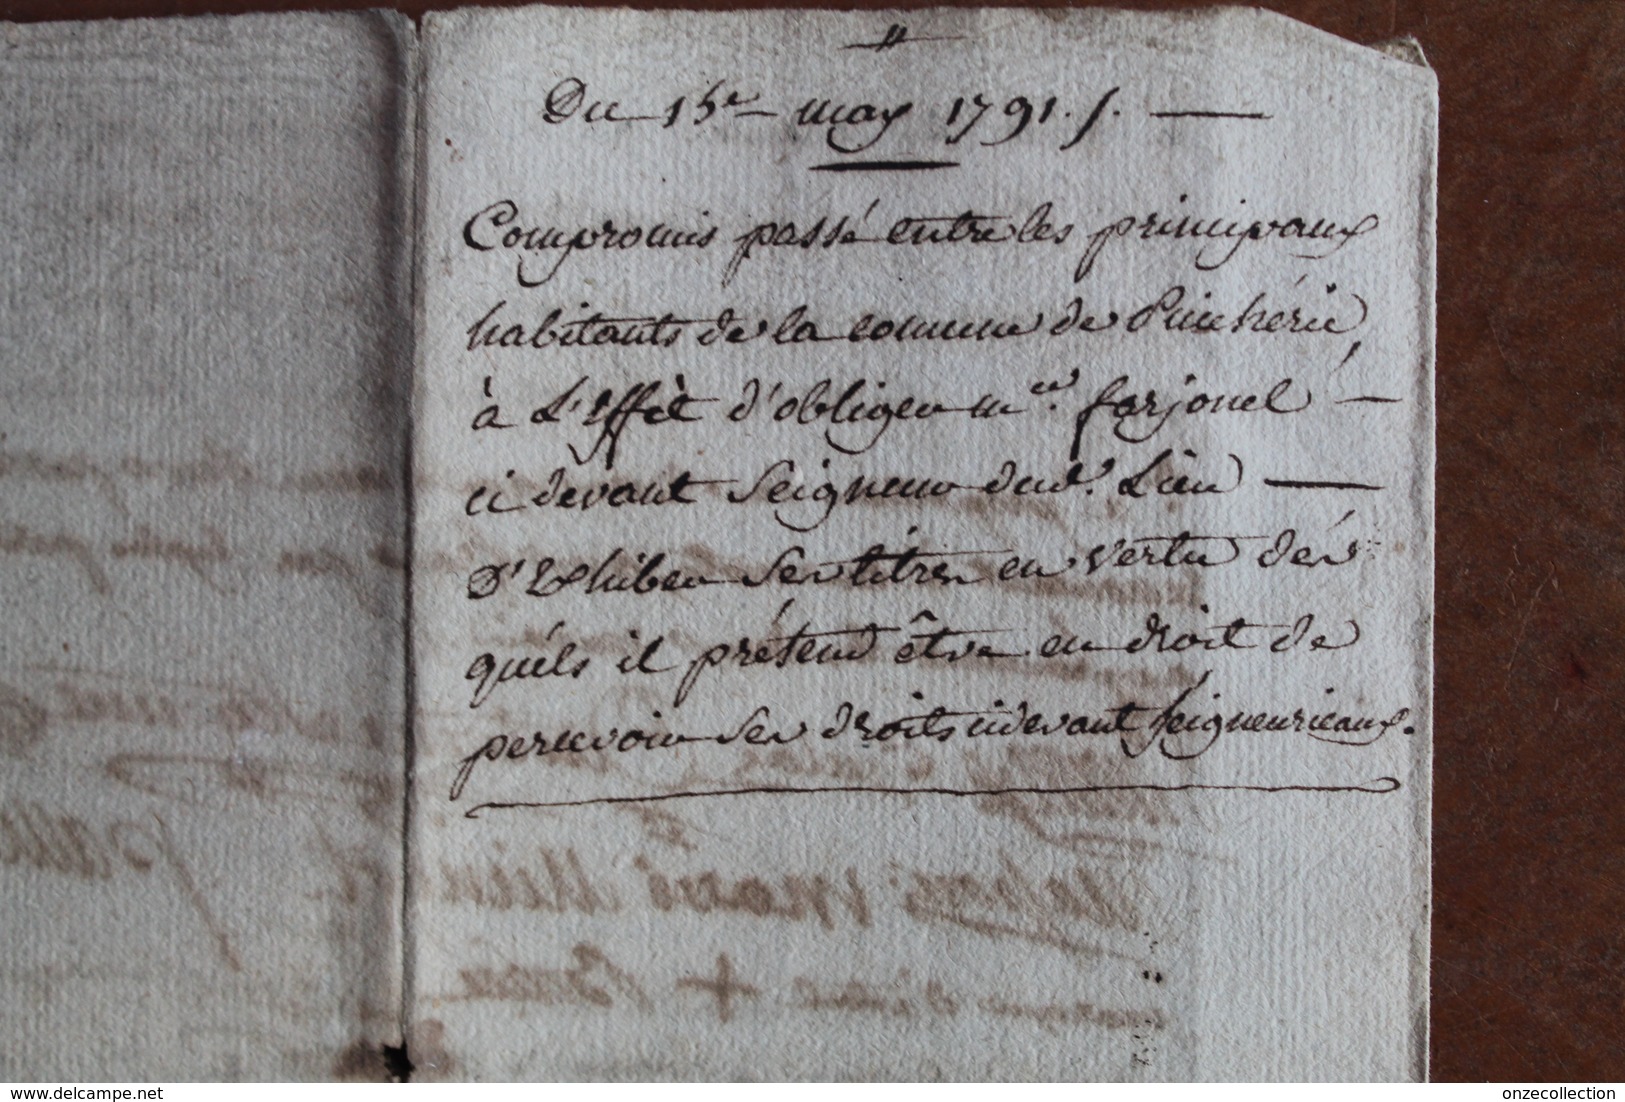 Du 15e may 1791.
Compromis passé entre les principaux
habitants de la commune de Puicheric
à L'Effèt d'obliger mr. farjonel
ci devant Seigneur dud. Lieu
D'Exhiber Ses titres en vertu dés
quéls il prétend être en droit de
percevoir Ses droits cidevant Seigneurieaux.
https://www.delcampe.net
onzecollection